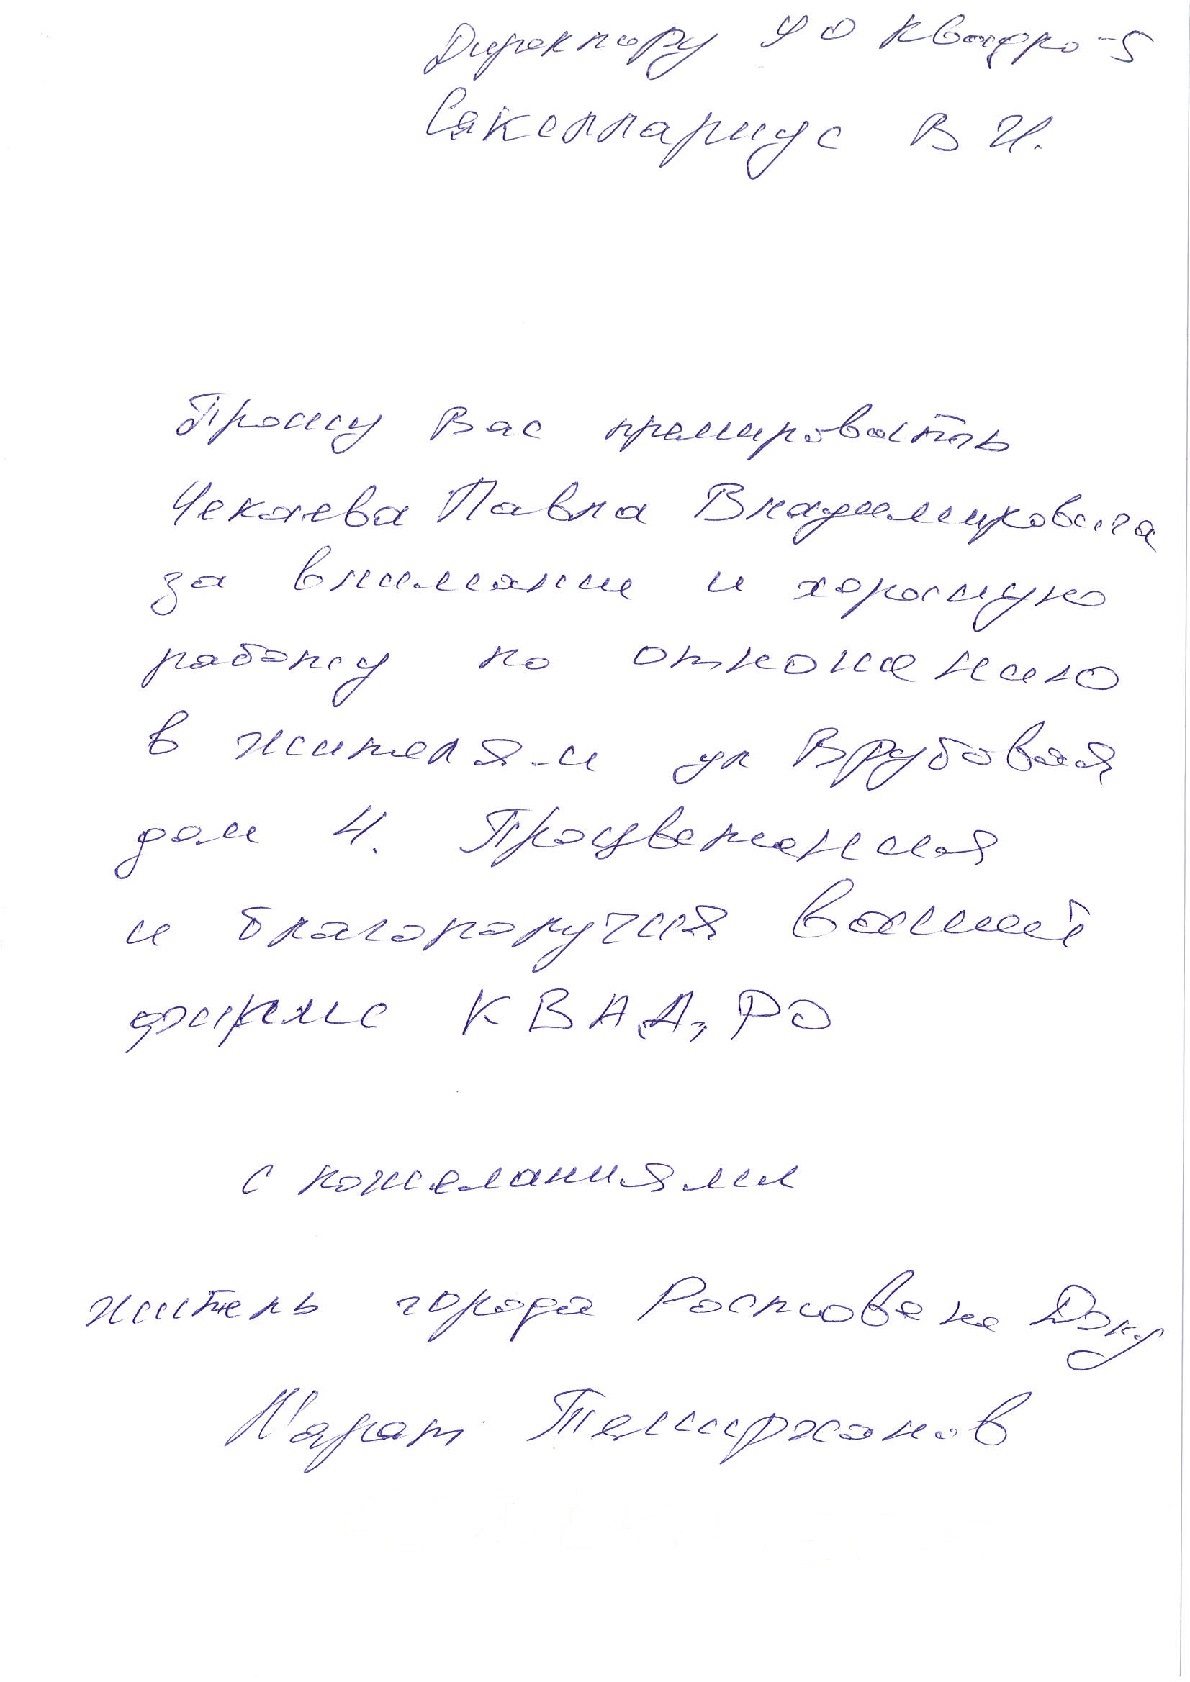 Директору УО Квадро-5
Сакеллариус В И.
Прошу Вас премировать
Чекаева Павла Владимировича
за внимание и хорошую
работу по отношению
в жителям ул Врубовая
дом 4. Процветания
и благополучия вашей
фирме КВАДРО
с пожеланиями
житель города Ростова на Дону
Марат Темирханов